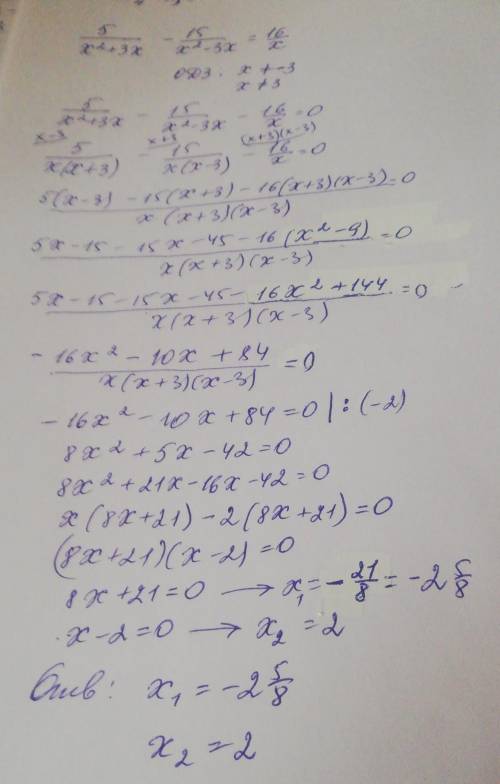 5/(x²+3x) - 15/(x²-3x) = 16/x
ОДЗ: x ≠ -3
x ≠ 3
5/(x²+3x) - 15/(x²-3x) - 16/x = 0
x-3 x+3 (x+3)(x-3)
5/(x(x+3)) - 15/(x(x-3)) - 16/x = 0
(5(x-3) - 15(x+3) - 16(x+3)(x-3))/(x(x+3)(x-3)) = 0
(5x-15-15x-45-16(x²-9))/(x(x+3)(x-3)) = 0
(5x-15-15x-45-16x²+144)/(x(x+3)(x-3)) = 0
(-16x²-10x+84)/(x(x+3)(x-3)) = 0
-16x²-10x+84=0 |:(-2)
8x²+5x-42=0
8x²+21x-16x-42=0
x(8x+21)-2(8x+21)=0
(8x+21)(x-2)=0
8x+21=0 → x₁=-21/8=-2 5/8
x-2=0 → x₂=2
Отв: x₁=-2 5/8
x₂=2